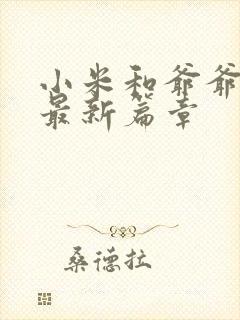 小米和爷爷
最新篇章
桑德拉